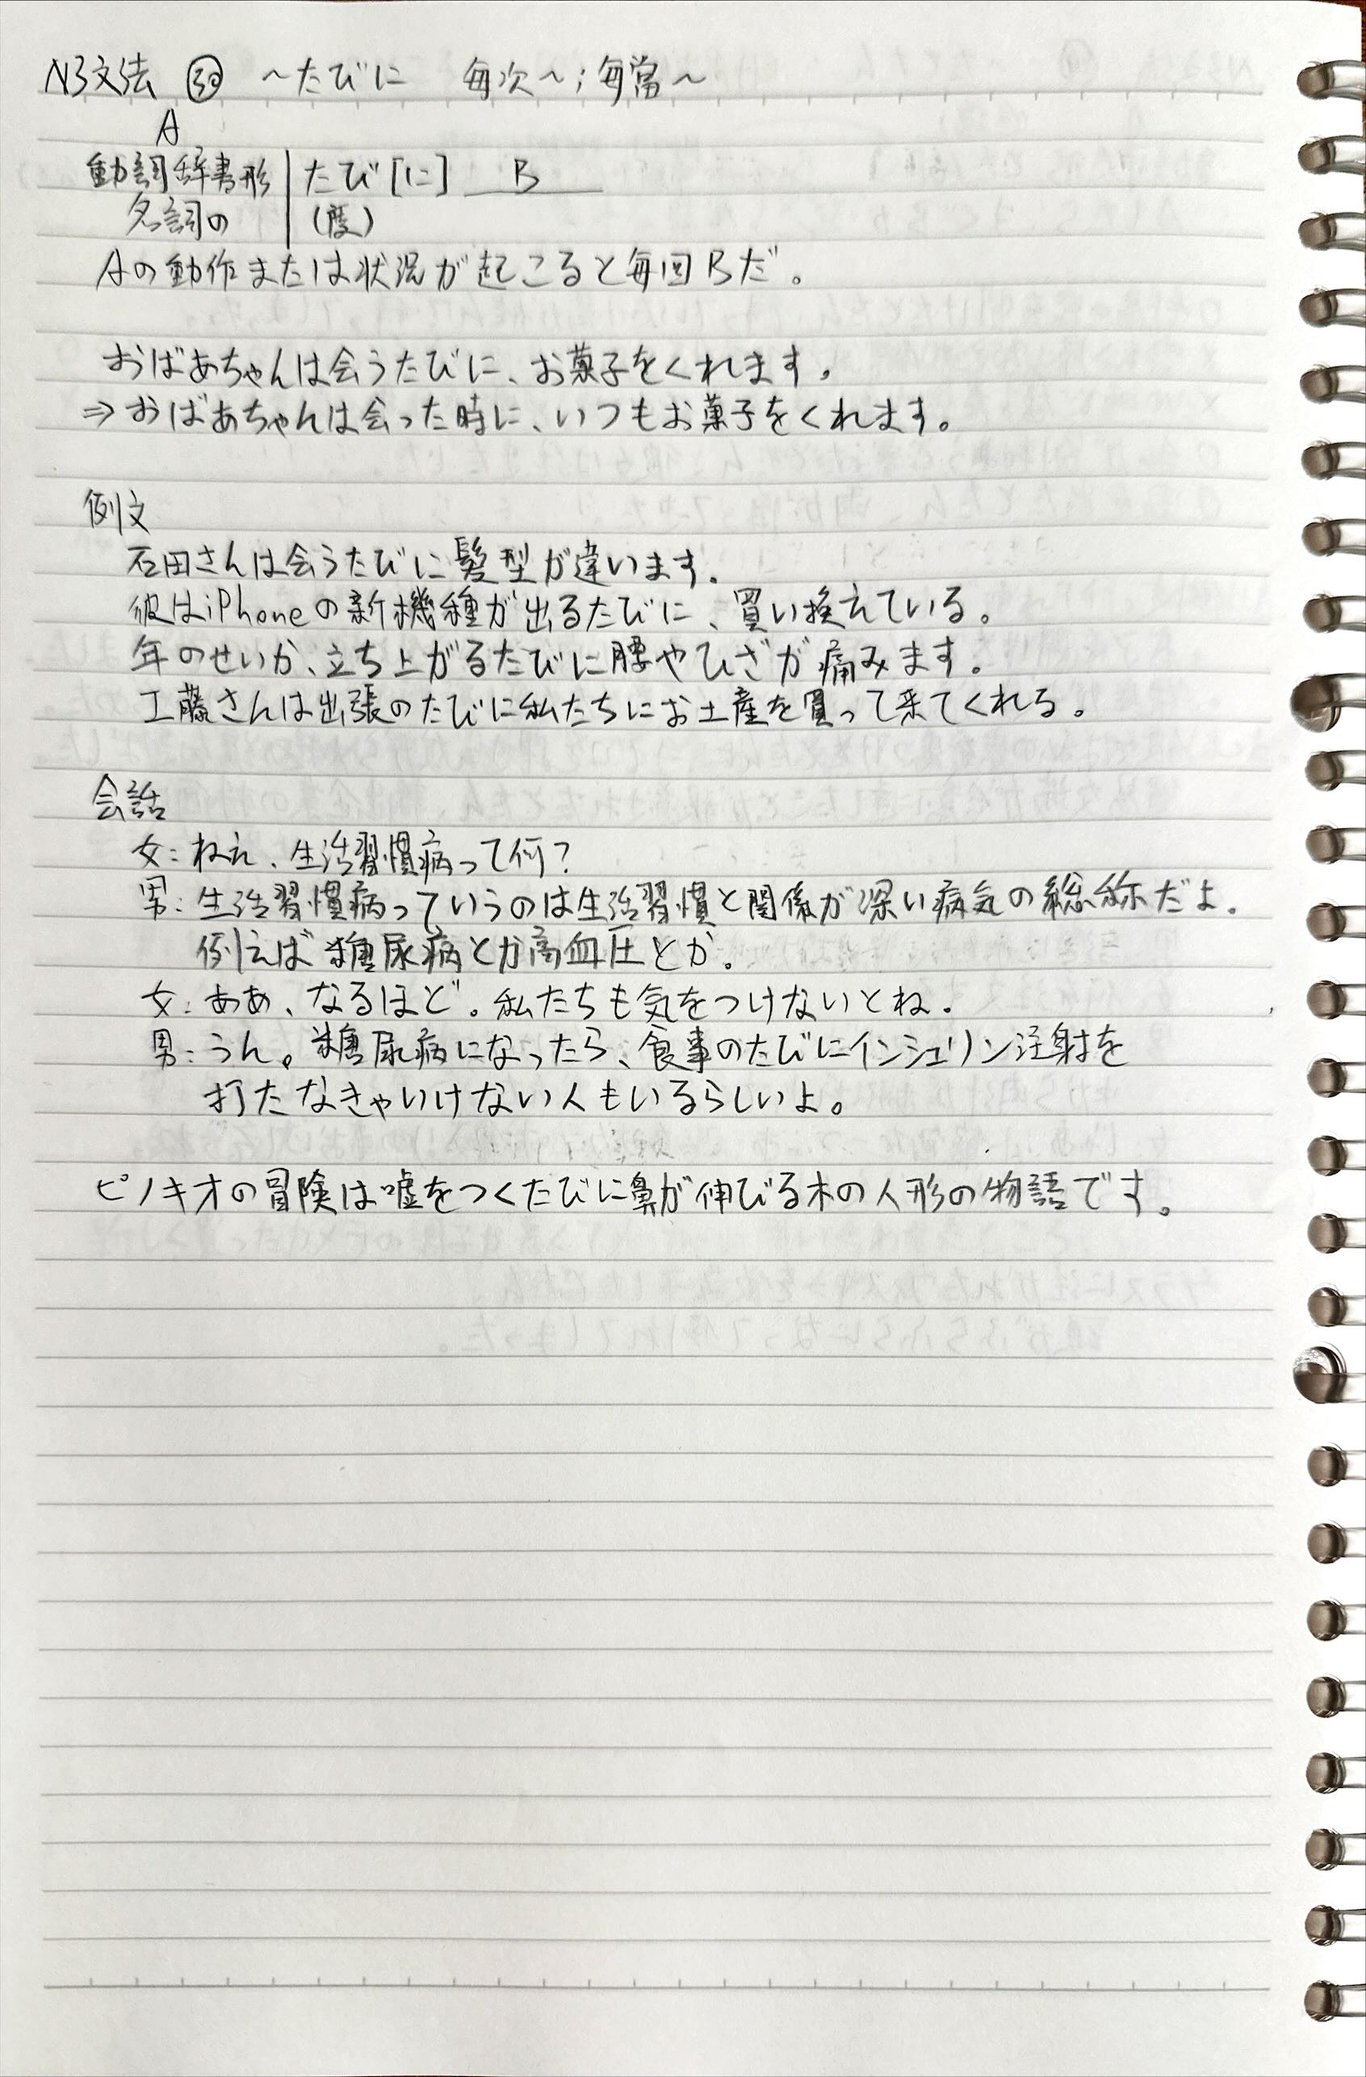 N3文法 ㊿ ～たびに 每次～；每當～
A
動詞辞書形 たび[に] B
名詞の (度)
Aの動作または状況が起こると毎回Bだ。
おばあちゃんは会うたびに、お菓子をくれます。
⇒おばあちゃんは会った時に、いつもお菓子をくれます。
例文
石田さんは会うたびに髪型が違います。
彼はiPhoneの新機種が出るたびに、買い換えている。
年のせいか、立ち上がるたびに腰やひざが痛みます。
工藤さんは出張のたびに私たちにお土産を買って来てくれる。
会話
女：ねえ、生活習慣病って何？
男：生活習慣病っていうのは生活習慣と関係が深い病気の総称だよ。
例えば糖尿病とか高血圧とか。
女：ああ、なるほど。私たちも気をつけないとね。
男：うん。糖尿病になったら、食事のたびにインシュリン注射を
打たなきゃいけない人もいるらしいよ。
ピノキオの冒険は嘘をつくたびに鼻が伸びる木の人形の物語です。